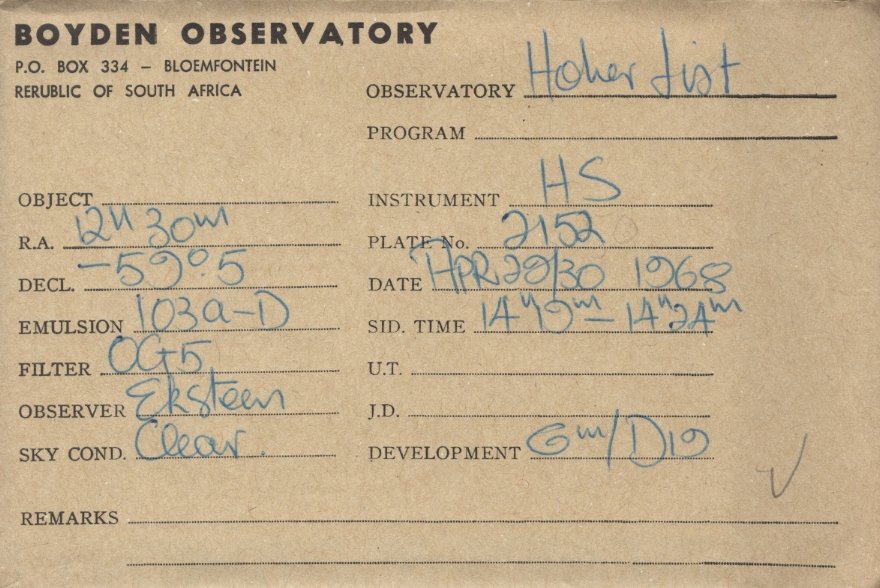 BOYDEN OBSERVATORY
P.O. BOX 334 – BLOEMFONTEIN
RERUBLIC OF SOUTH AFRICA
OBSERVATORY Hoher List
PROGRAM
OBJECT
INSTRUMENT HS
R.A. 12h 30m
PLATE No. 2152
DECL. -59°.5
DATE APR 29/30 1968
EMULSION 103a-D
SID. TIME 14h19m – 14h24m
FILTER OG5
U.T.
OBSERVER Eksteen
J.D.
SKY COND. Clear.
DEVELOPMENT 6m/D19
REMARKS